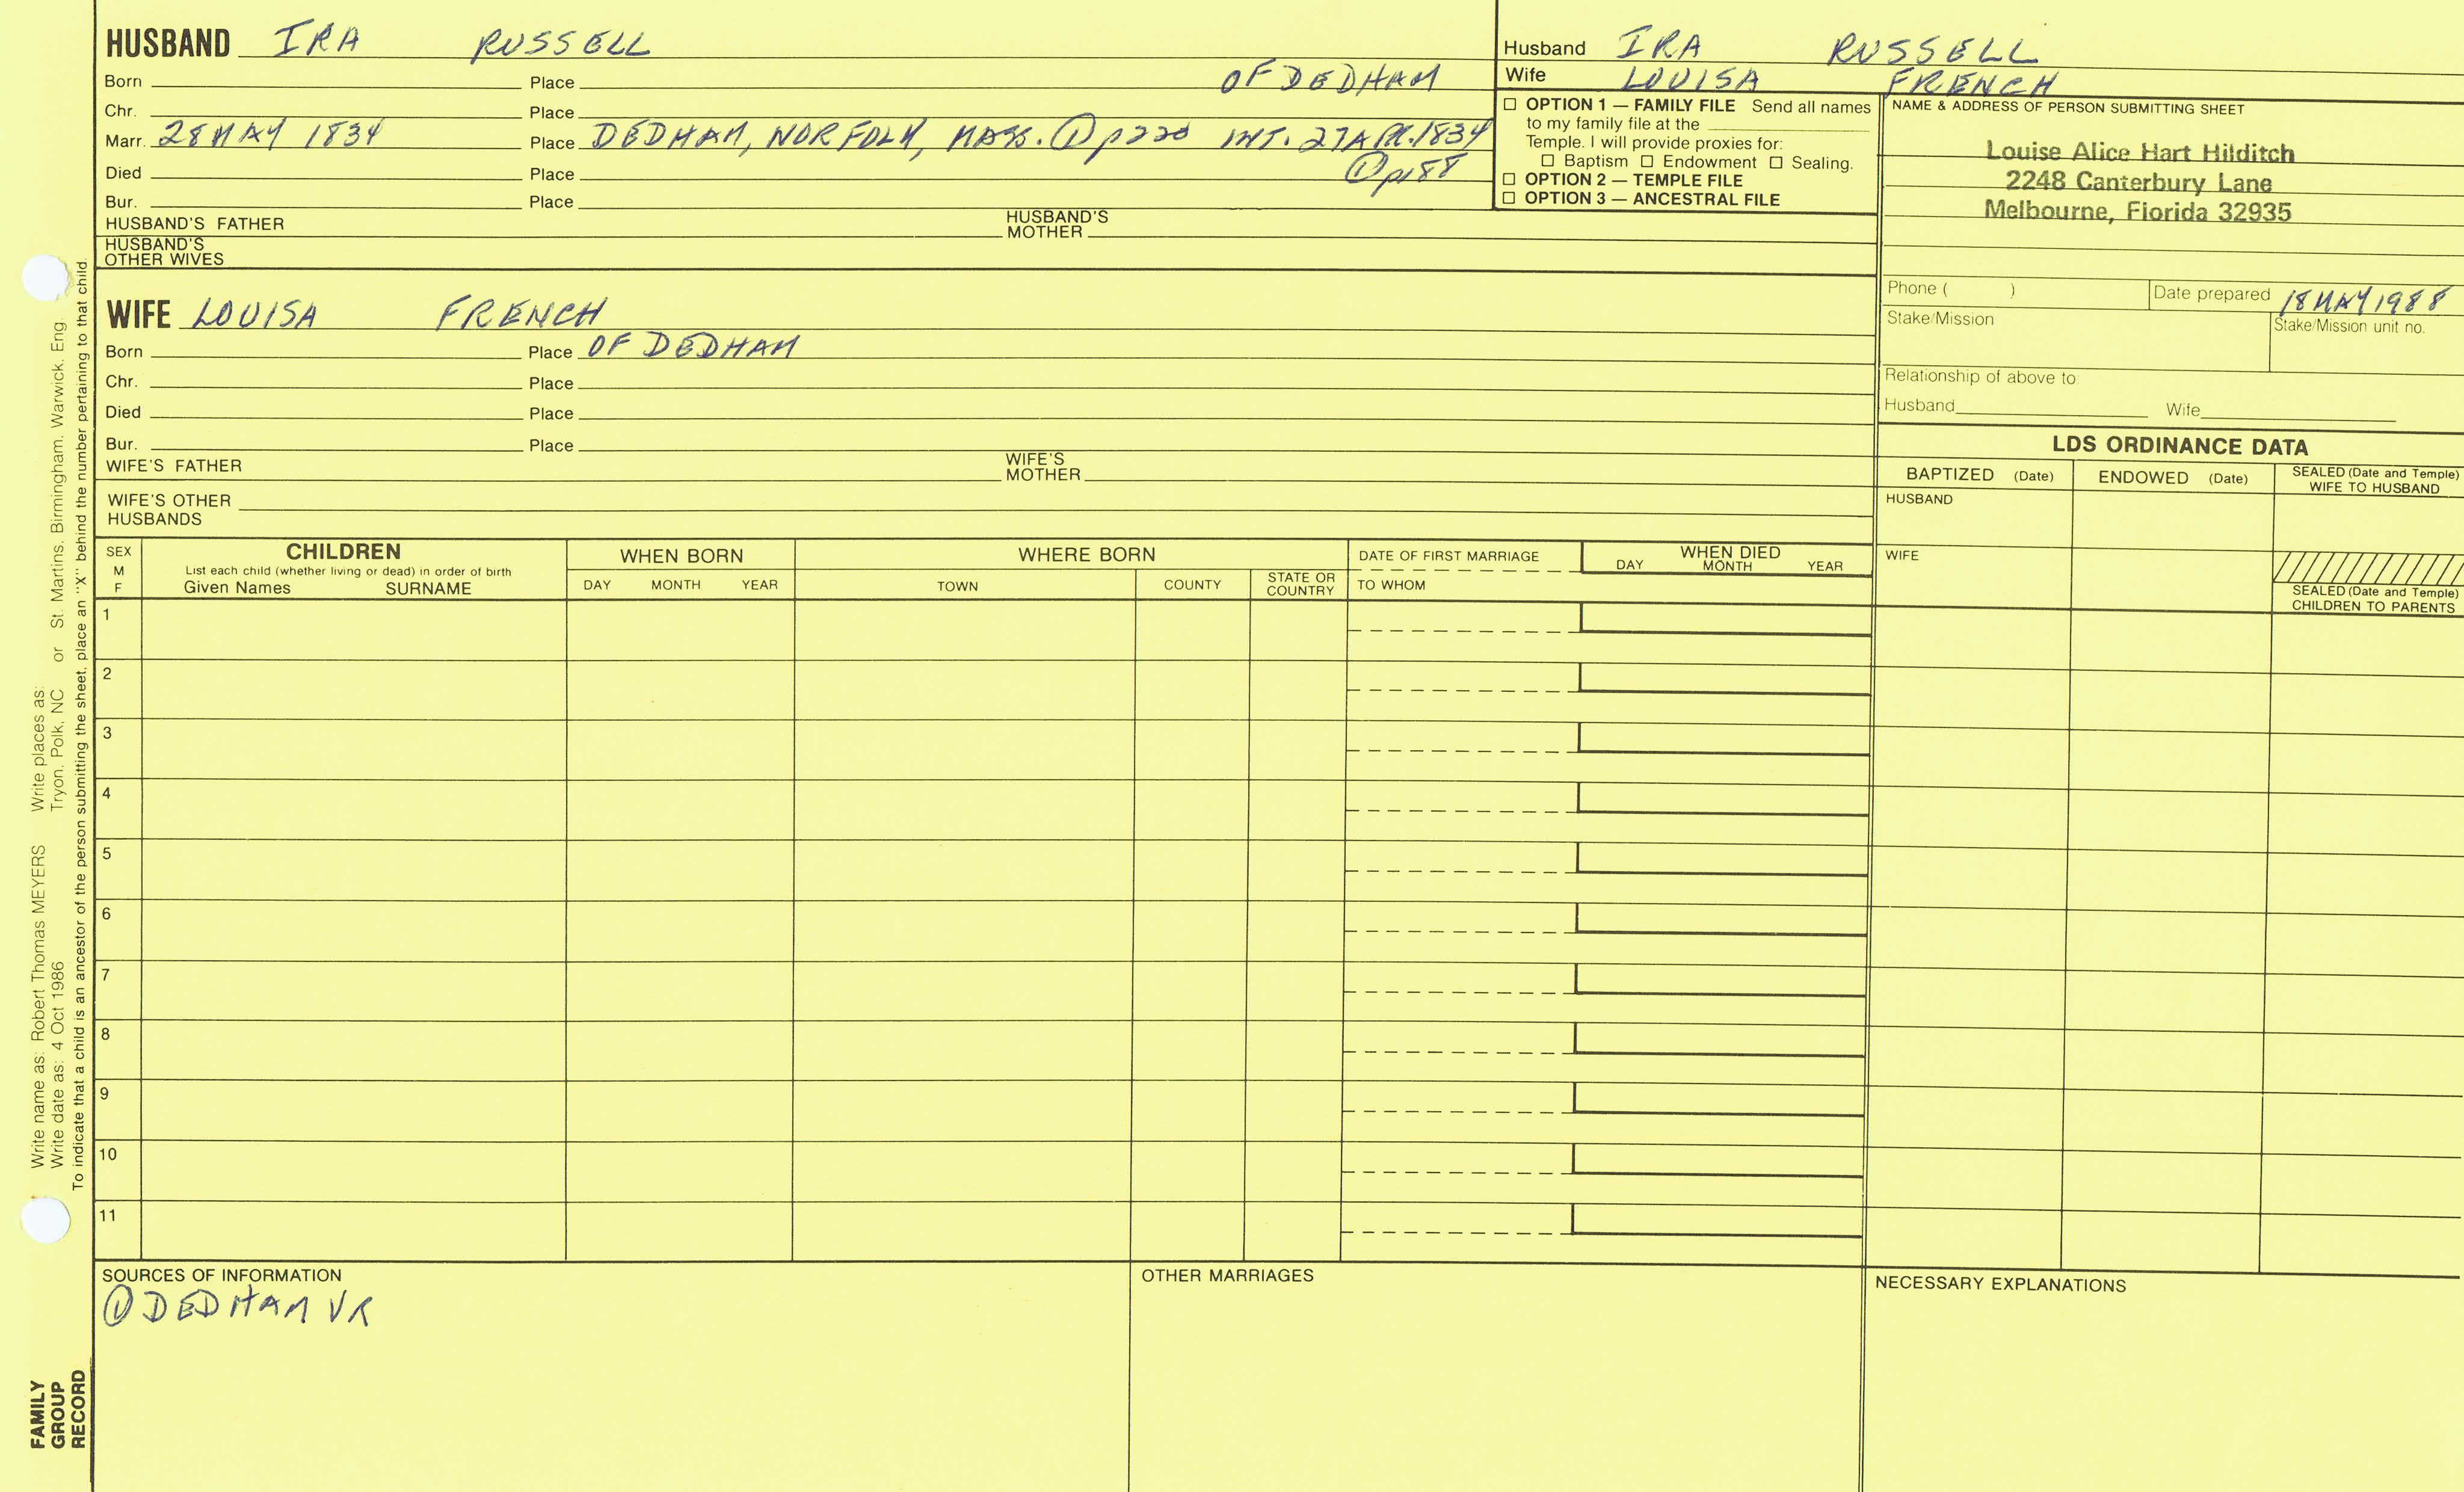 HUSBAND IRA RUSSELL
Born Place OF DEDHAM
Chr. Place
Marr. 28 MAY 1834 Place DEDHAM, NORFOLK, MASS. ① p220 INT. 27 APR. 1834
① p188
Died Place
Bur. Place
HUSBAND'S FATHER HUSBAND'S MOTHER
HUSBAND'S OTHER WIVES
Husband IRA RUSSELL
Wife LOUISA FRENCH
☐ OPTION 1 — FAMILY FILE Send all names
to my family file at the
Temple. I will provide proxies for:
☐ Baptism ☐ Endowment ☐ Sealing.
☐ OPTION 2 — TEMPLE FILE
☐ OPTION 3 — ANCESTRAL FILE
NAME & ADDRESS OF PERSON SUBMITTING SHEET
Louise Alice Hart Hilditch
2248 Canterbury Lane
Melbourne, Florida 32935
Phone ( ) Date prepared 18 MAY 1988
Stake/Mission Stake/Mission unit no.
Relationship of above to:
Husband Wife
WIFE LOUISA FRENCH
Born Place OF DEDHAM
Chr. Place
Died Place
Bur. Place
WIFE'S FATHER WIFE'S MOTHER
WIFE'S OTHER HUSBANDS
LDS ORDINANCE DATA
BAPTIZED (Date) ENDOWED (Date) SEALED (Date and Temple) WIFE TO HUSBAND
HUSBAND
WIFE
SEALED (Date and Temple) CHILDREN TO PARENTS
SEX M F
CHILDREN
List each child (whether living or dead) in order of birth
Given Names SURNAME
WHEN BORN
DAY MONTH YEAR
WHERE BORN
TOWN COUNTY STATE OR COUNTRY
DATE OF FIRST MARRIAGE
TO WHOM
WHEN DIED
DAY MONTH YEAR
1
2
3
4
5
6
7
8
9
10
11
SOURCES OF INFORMATION
① DEDHAM VR
OTHER MARRIAGES
NECESSARY EXPLANATIONS
Write name as: Robert Thomas MEYERS Write places as:
Write date as: 4 Oct 1986 Tryon, Polk, NC or St. Martins, Birmingham, Warwick, Eng.
To indicate that a child is an ancestor of the person submitting the sheet, place an "X" behind the number pertaining to that child.
FAMILY
GROUP
RECORD